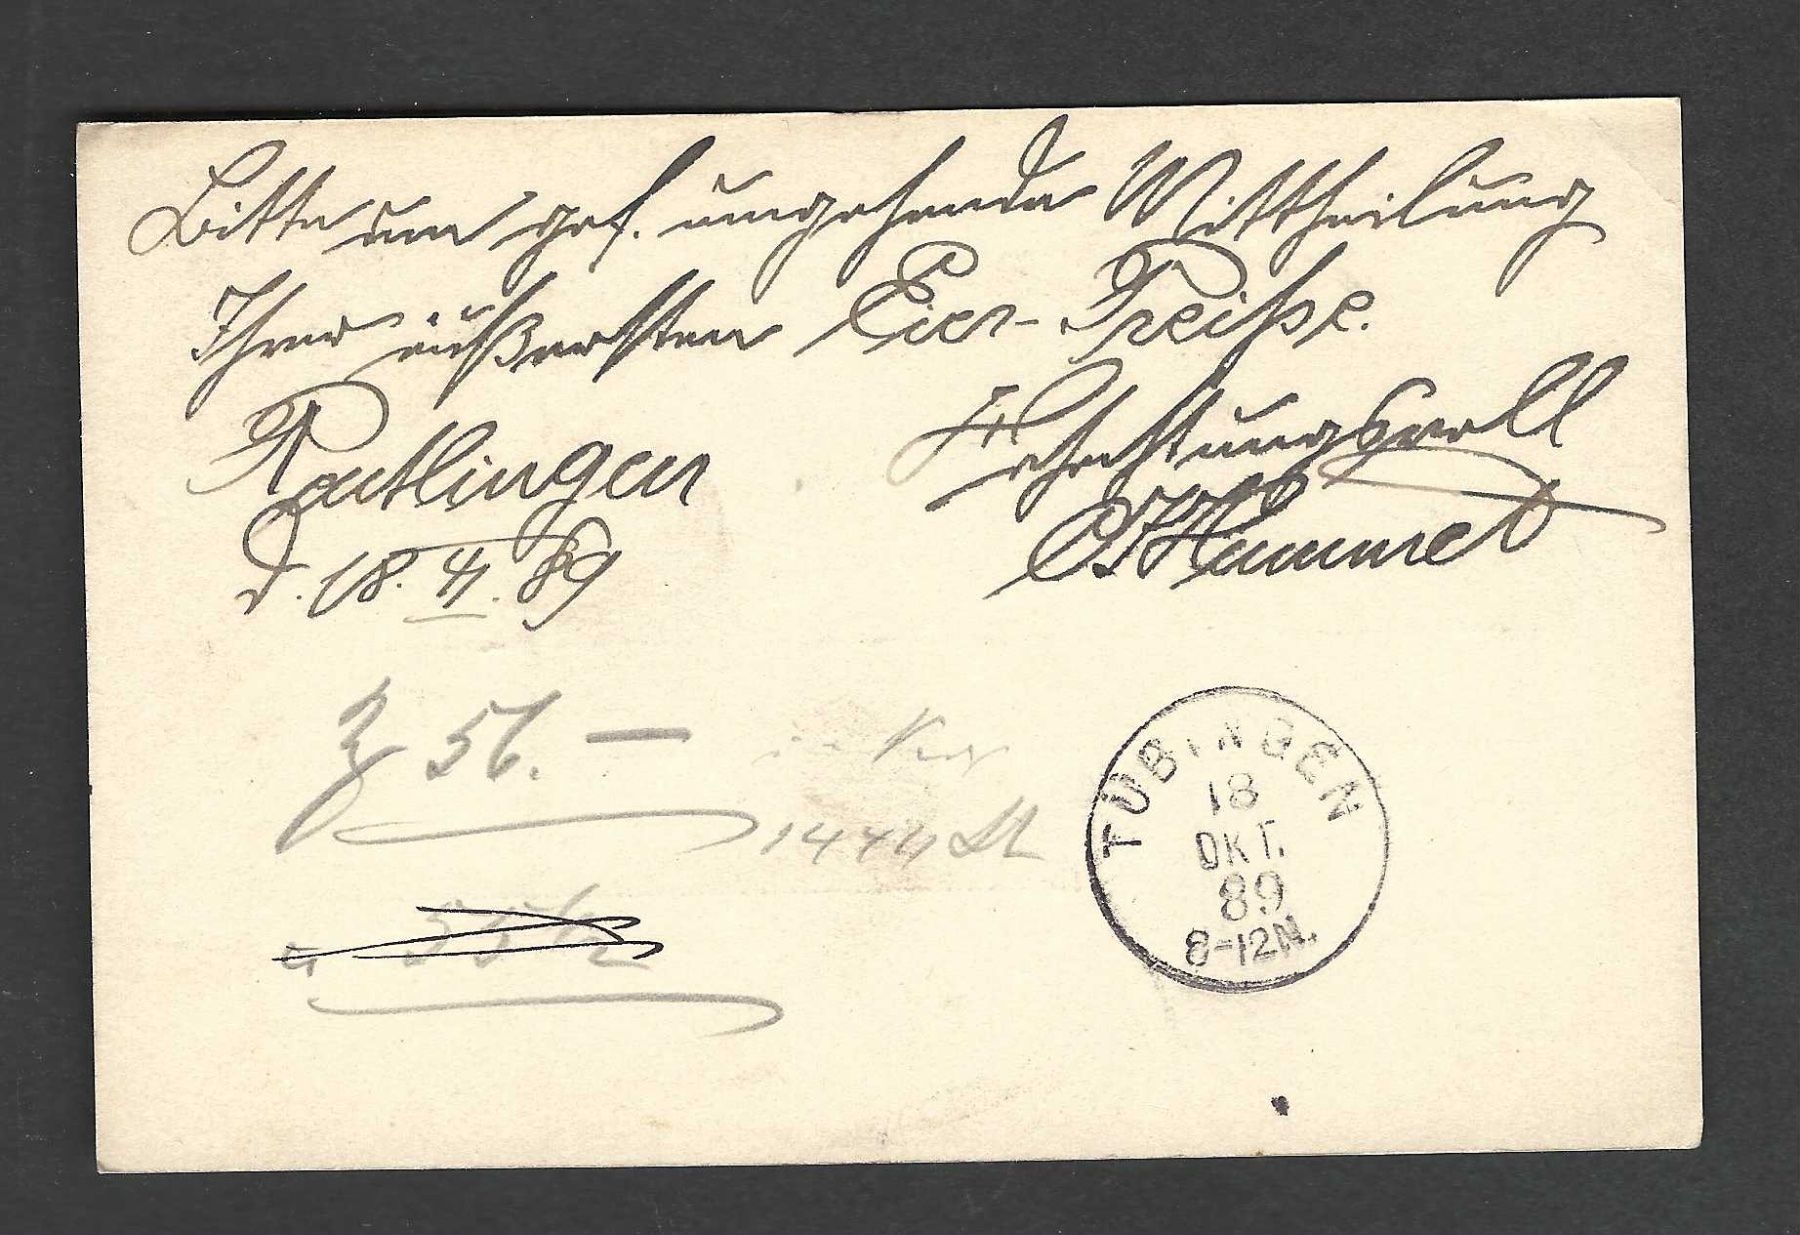 Bitte um gef. umgehende Mittheilung
Ihrer äußersten Eier-Preise.
Hochachtungsvoll
Reutlingen
Hummel
d. 18. 89
56. —
1440 St
TÜBINGEN
18
OKT.
89
8-12N.